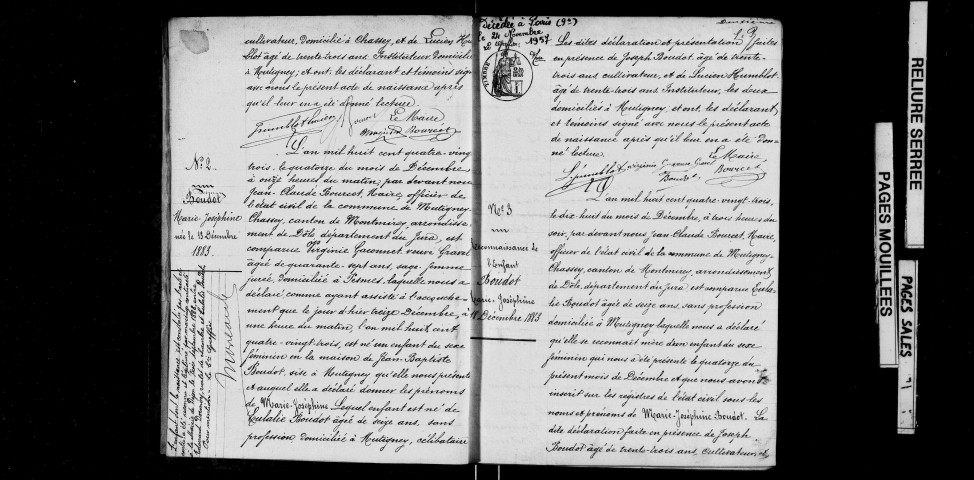 cultivateur, domicilié à Chassey, et de Lucien Hum
blot âgé de trente-trois ans Instituteur, domicilié
à Mutigney; et ont, les déclarant et témoins signé
avec nous le présent acte de naissance après
qu'il leur en a été donné lecture.
Humblot Lucien
Le Maire
Bourcet
N° 2
Boudot
Marie-Joséphine
née le 13 Décembre
1883
L'an mil huit cent quatre-vingt
trois, le quatorze du mois de Décembre,
à onze heures du matin, par devant nous
Jean-Claude Bourcet, Maire, officier de
l'état civil de la commune de Mutigney-
Chassey, canton de Montmirey, arrondisse-
ment de Dôle, département du Jura, est
comparue Virginie Gaconnet, veuve Gravel
âgée de quarante-sept ans, sage-femme
jurée, domiciliée à Pesmes, laquelle nous a
déclaré comme ayant assisté à l'accouche-
ment que le jour d'hier treize Décembre, à
une heure du matin, l'an mil huit cent
quatre-vingt-trois, est né un enfant du sexe
féminin en la maison de Jean-Baptiste
Boudot, sise à Mutigney qu'elle nous présente
et auquel elle a déclaré donner les prénoms
de Marie-Joséphine. Lequel enfant est né de
Eulalie Boudot âgée de seize ans, sans
profession domiciliée à Mutigney, célibataire
Décédée à Paris (9e)
le 24 Novembre
1957
TIMBRE
Deuxième
Les dites déclaration et présentation faites
en présence de Joseph Boudot, âgé de trente-
trois ans cultivateur, et de Lucien Humblot
âgé de trente-trois ans Instituteur, les deux
domiciliés à Mutigney, et ont, les déclarant,
et témoins signé avec nous le présent acte
de naissance après qu'il leur en a été don-
né lecture.
Humblot
Boudot
Le Maire
Bourcet
N° 3
Reconnaissance de
l'Enfant
Boudot
Marie-Joséphine
18 Décembre 1883
L'an mil huit cent quatre-vingt-trois,
le dix-huit du mois de Décembre, à trois heures du
soir, par devant nous, Jean-Claude Bourcet, Maire,
officier de l'état civil de la commune de Mutigney-
Chassey, canton de Montmirey, arrondissement
de Dôle, département du Jura; est comparue Eula-
lie Boudot âgée de seize ans, sans profession
domiciliée à Mutigney laquelle nous a déclaré
qu'elle se reconnait mère d'un enfant du sexe
féminin qui nous a été présenté le quatorze du
présent mois de Décembre et que nous avons
inscrit sur les registres de l'état civil sous les
noms et prénoms de Marie-Joséphine Boudot. La
dite déclaration faite en présence de Joseph
Boudot âgé de trente-trois ans, cultivateur et
RELIURE SERREE
PAGES MOUILLEES
PAGES SALES